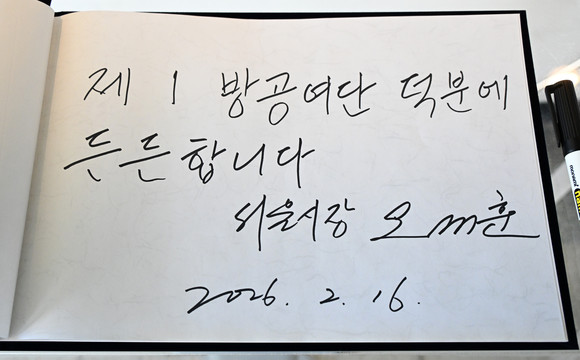 제 1 방공여단 덕분에
든든합니다
서울시장 오세훈
2026. 2. 16.